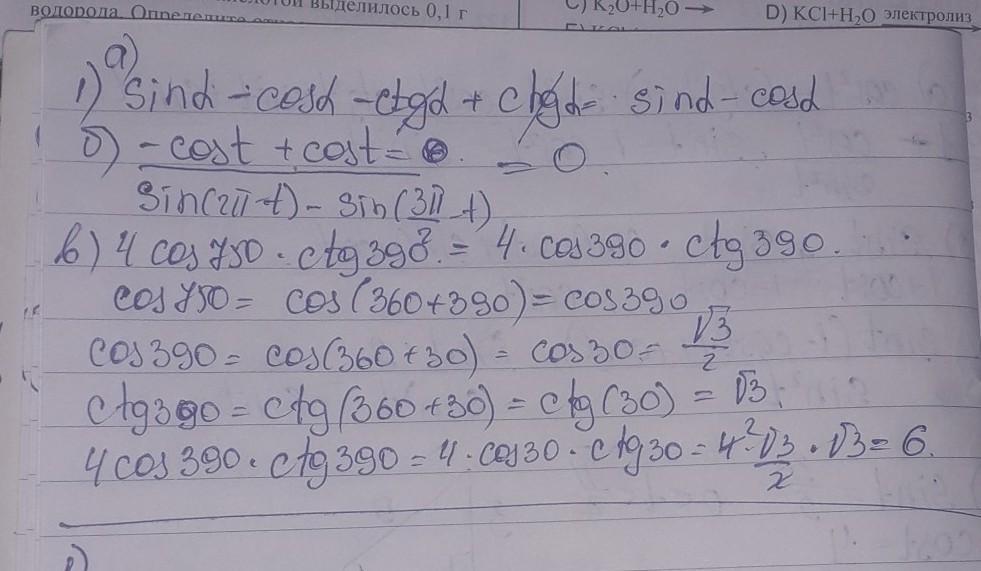 водорода. Определите
выделилось 0,1 г
C) K₂O+H₂O →
D) KCl+H₂O электролиз
а)
1) sinα - cosα - ctgα + ctgα = sinα - cosα
б) -cost + cost = 0 = 0.
sin(2π-t) - sin(3π/2 -t)
в) 4 cos750 · ctg390. = 4 · cos390 · ctg390.
cos750 = cos(360+390) = cos390
cos390 = cos(360+30) = cos30 = √3/2
ctg390 = ctg(360+30) = ctg(30) = √3;
4cos390 · ctg390 = 4 · cos30 · ctg30 = 4² · √3/2 · √3 = 6.